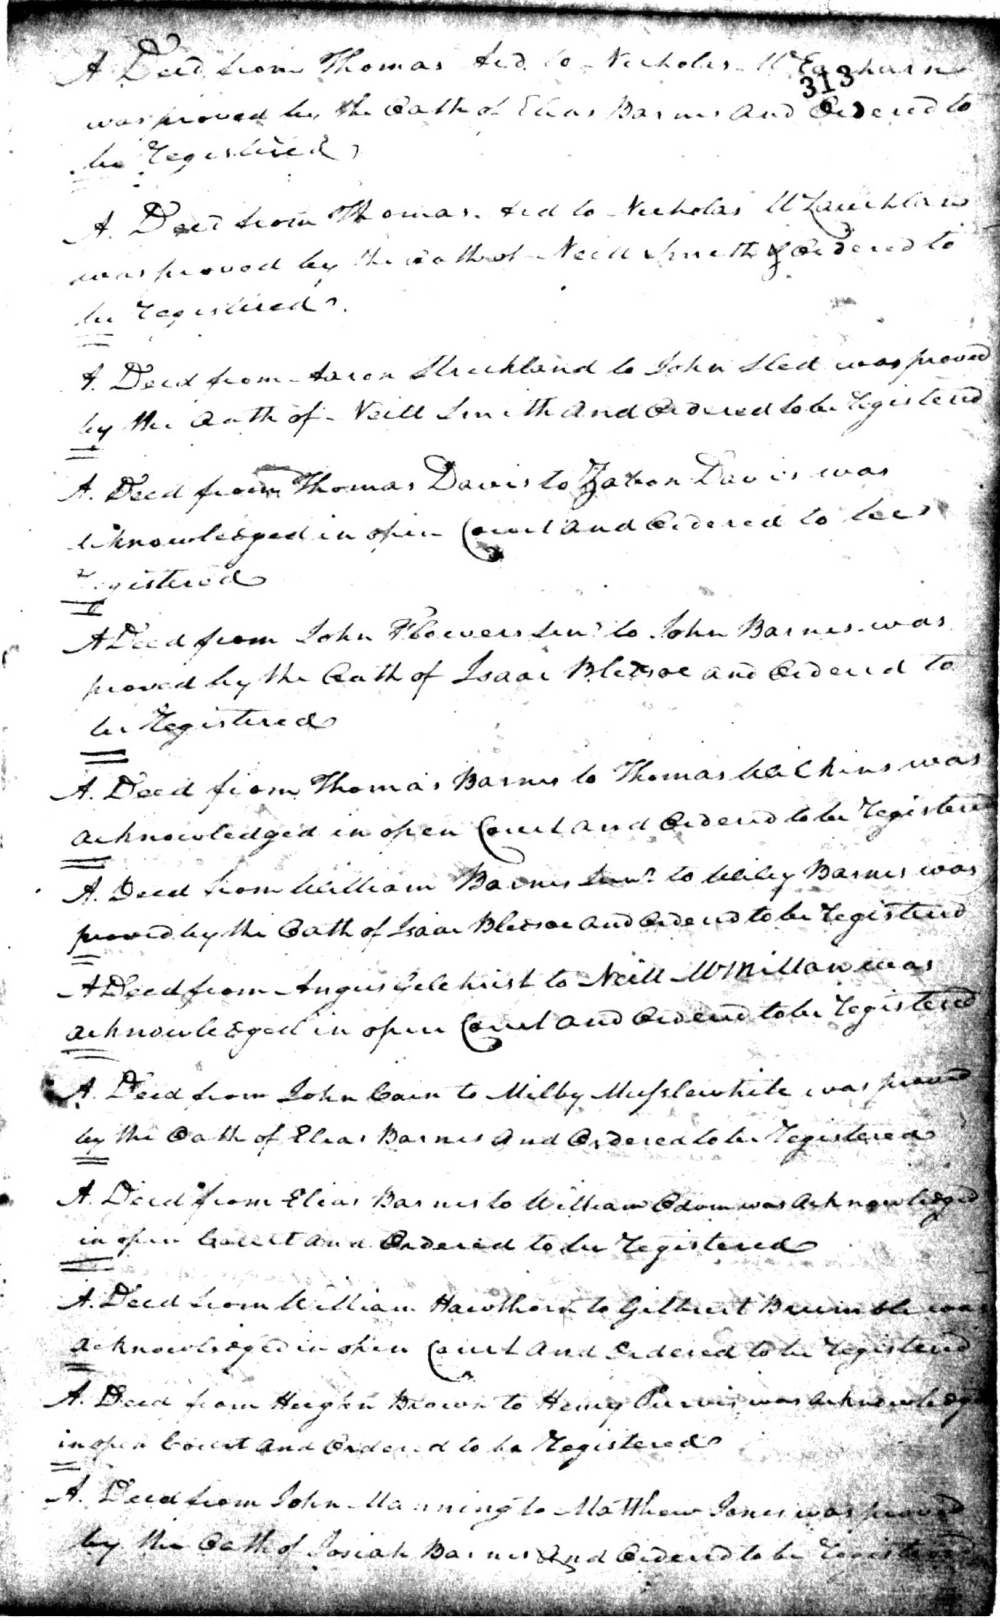 313
A Deed from Thomas to Nicholas
was proved by the Oath of Elias Barnes and Ordered to
be Registered
A. Deed from Thomas to Nicholas McLauchlan
was proved by the oath of Neill Smith & Ordered to
be Registered.
A. Deed from Aaron Strickland to John Sled was proved
by the Oath of Neill Smith and Ordered to be Registered
A. Deed from Thomas Davis to Davis was
acknowledged in open Court and Ordered to bee
registered
A Deed from John Flowers Senr to John Barnes was
proved by the Oath of Isaac Bletsoe and Ordered to
be Registered
A. Deed from Thomas Barnes to Thomas Watkins was
acknowledged in open Court and Ordered to be Registered
A. Deed from William Barnes Senr to Wiley Barnes was
proved by the Oath of Isaac Bletsoe and Ordered to be Registered
A Deed from Angus Gilchrist to Neill McMillan was
acknowledged in open Court and Ordered to be Registered
A. Deed from John Cain to Milby Musslewhite was proved
by the Oath of Elias Barnes and Ordered to be Registered
A. Deed from Elias Barnes to William Odom was acknowledged
in open Court and Ordered to be Registered
A. Deed from William Hawthorn to Gilbert was
acknowledged in open Court and Ordered to be Registered
A. Deed from Hugh Brown to Henry Purvis was acknowledged
in open Court and Ordered to be Registered
A. Deed from John Manning to Matthew Jones was proved
by the Oath of Josiah Barnes and Ordered to be Registered